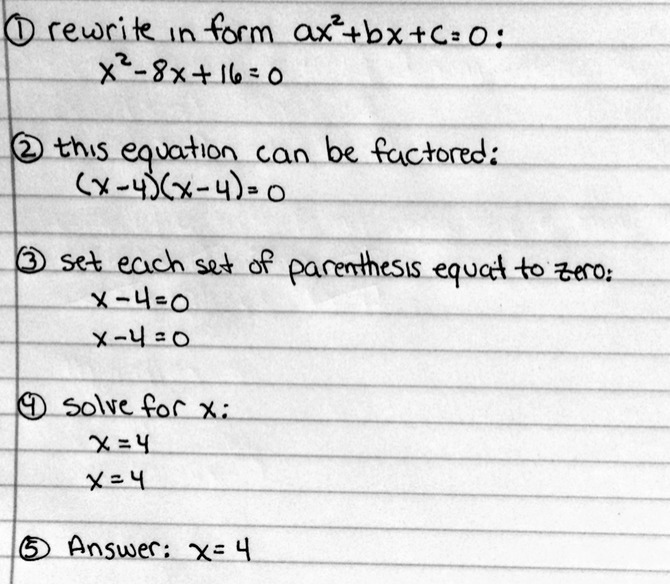 ① rewrite in form ax²+bx+c=0:
x²-8x+16=0
② this equation can be factored:
(x-4)(x-4)=0
③ set each set of parenthesis equal to zero:
x-4=0
x-4=0
④ solve for x:
x=4
x=4
⑤ Answer: x=4